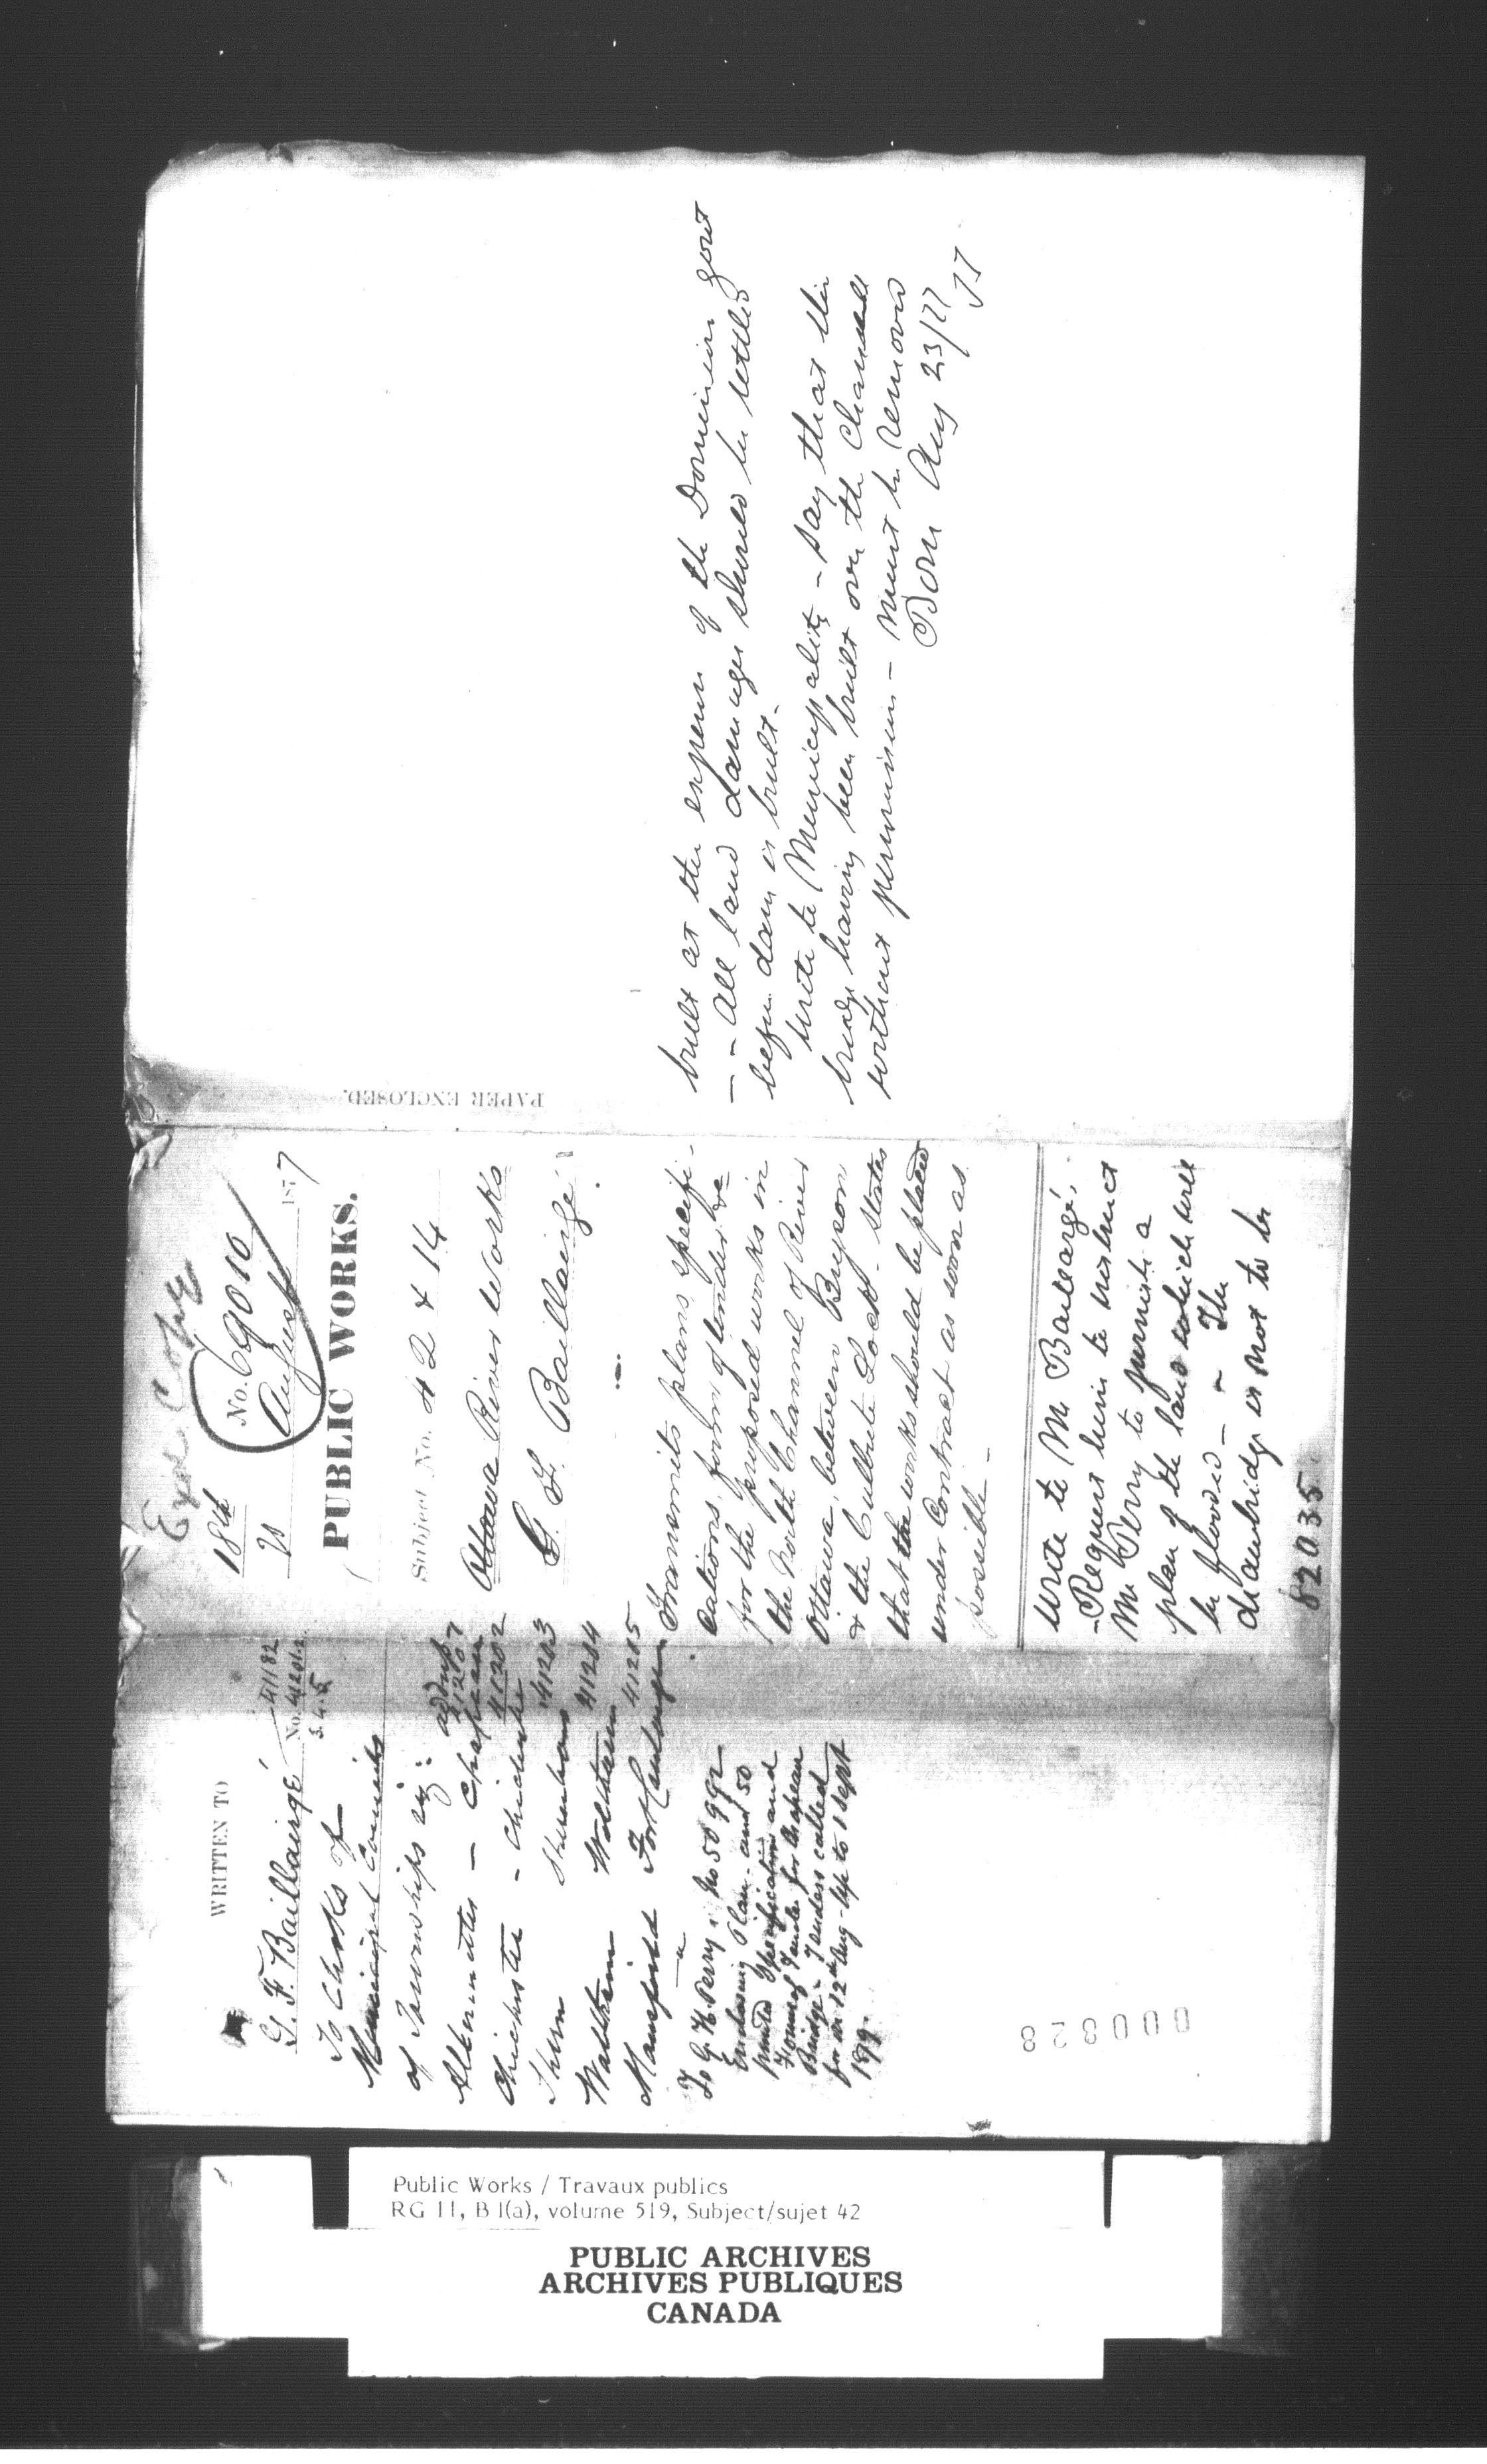 WRITTEN TO
G. F. Baillairgé
41182
No. 41201.
3.4.5
To Clerks of
Municipal Councils
of Townships viz:
Allumettes - Chapeau 41207
Chichester - Chichester 41202
Sheen Sheenboro 41203
Waltham Waltham 41204
Mansfield Fort Coulonge 41205
To G. H. Perry No 50992
Enclosing Plan - and 50
printed Specification and
Forms of Tender for Chapeau
Bridge - Tenders called
for in 12th Aug - up to 1 Sept
1879
000828
Copy
18th
No. 69010
August
1877
PUBLIC WORKS.
Subject No. 42 & 14
Ottawa River Works
G. F. Baillairgé
Transmits plans, specifi-
cations, form of tender &c
for the proposed works in
the North Channel of River
Ottawa, between Bryson
& the Culbute Lock - States
that the works should be placed
under contract as soon as
possible -
Write to Mr Baillargé,
- Request him to instruct
Mr Perry to furnish a
plan of the land which will
be flooded - - The
drawbridge is not to be
82035
PAPER ENCLOSED.
built at the expense of the Dominion govt
- - All land damages should be settled
before dam is built -
Write to Municipality - Say that this
bridge having been built over the Channel
without permission - must be removed
Aug 23/77